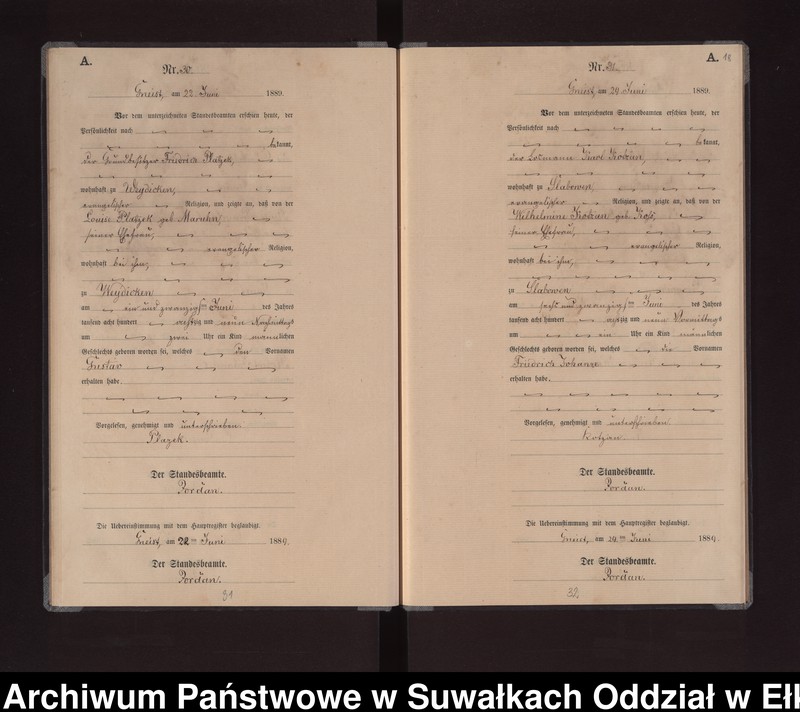 A.
Nr. 30.
Gneist, am 22 Juni 1889.
Vor dem unterzeichneten Standesbeamten erschien heute, der
Persönlichkeit nach
bekannt,
der Grundbesitzer Friedrich Platzek,
wohnhaft zu Weydicken,
evangelischer Religion, und zeigte an, daß von der
Louise Platzek geb. Maruhn,
seiner Ehefrau,
evangelischer Religion,
wohnhaft bei ihm,
zu Weydicken
am ein und zwanzigsten Juni des Jahres
tausend acht hundert achtzig und neun Nachmittags
um zwei Uhr ein Kind männlichen
Geschlechts geboren worden sei, welches den Vornamen
Gustav
erhalten habe.
Vorgelesen, genehmigt und unterschrieben.
Der Standesbeamte.
Pordan.
Die Uebereinstimmung mit dem Hauptregister beglaubigt.
Gneist, am 22ten Juni 1889.
Der Standesbeamte.
Pordan.
31
A. 18
Nr. 31.
Gneist, am 29 Juni 1889.
Vor dem unterzeichneten Standesbeamten erschien heute, der
Persönlichkeit nach
bekannt,
der Losmann Karl
wohnhaft zu Slabowen,
evangelischer Religion, und zeigte an, daß von der
Wilhelmine geb.
seiner Ehefrau,
evangelischer Religion,
wohnhaft bei ihm,
zu Slabowen
am sechs und zwanzigsten Juni des Jahres
tausend acht hundert achtzig und neun Vormittags
um ein Uhr ein Kind männlichen
Geschlechts geboren worden sei, welches die Vornamen
Friedrich
erhalten habe.
Vorgelesen, genehmigt und unterschrieben.
Kotzan.
Der Standesbeamte.
Pordan.
Die Uebereinstimmung mit dem Hauptregister beglaubigt.
Gneist, am 29ten Juni 1889.
Der Standesbeamte.
Pordan.
32
Archiwum Państwowe w Suwałkach Oddział w Ełk